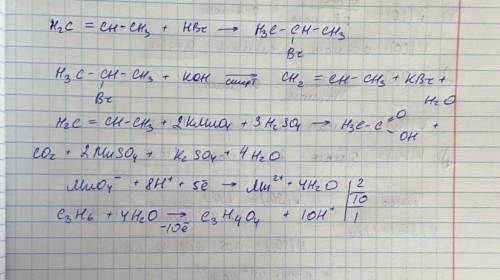 H₂C = CH-CH₃ + HBr → H₃C-CH-CH₃
Br
H₃C-CH-CH₃ + KOH спирт → CH₂ = CH-CH₃ + KBr +
Br
H₂O
H₂C = CH-CH₃ + 2KMnO₄ + 3H₂SO₄ → H₃C-C =O OH +
CO₂ + 2MnSO₄ + K₂SO₄ + 4H₂O
MnO₄⁻ + 8H⁺ + 5ē → Mn²⁺ + 4H₂O | 2
10
C₃H₆ + 4H₂O → -10ē C₃H₄O₄ + 10H⁺ | 1